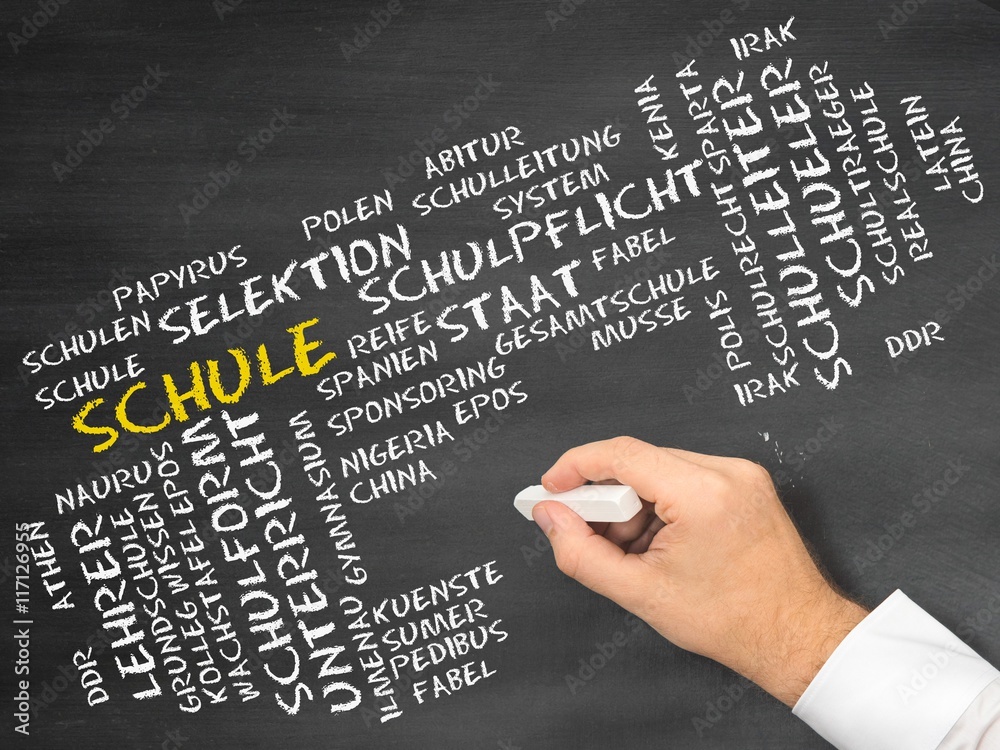 IRAK
ABITUR
SCHULLEITUNG
SYSTEM
KENIA
SPARTA
SCHULLEITER
SCHUELER
SCHULTRAEGER
REALSCHULE
LATEIN
CHINA
POLEN
SELEKTION
SCHULPFLICHT
FABEL
SCHULRECHT
SCHULE
PAPYRUS
SCHULEN
SCHULE
SCHULE
REIFE
STAAT
GESAMTSCHULE
MUSSE
POLIS
IRAK
DDR
SPANIEN
SPONSORING
EPOS
NIGERIA
CHINA
NAURU
ATHEN
DDR
LEHRER
GRUNDSCHULE
KOLLEG WISSEN
WACHSTAFEL EPOS
SCHULFORM
UNTERRICHT
GYMNASIUM
ILMENAU
KUENSTE
SUMER
PEDIBUS
FABEL
Adobe Stock | #117126955